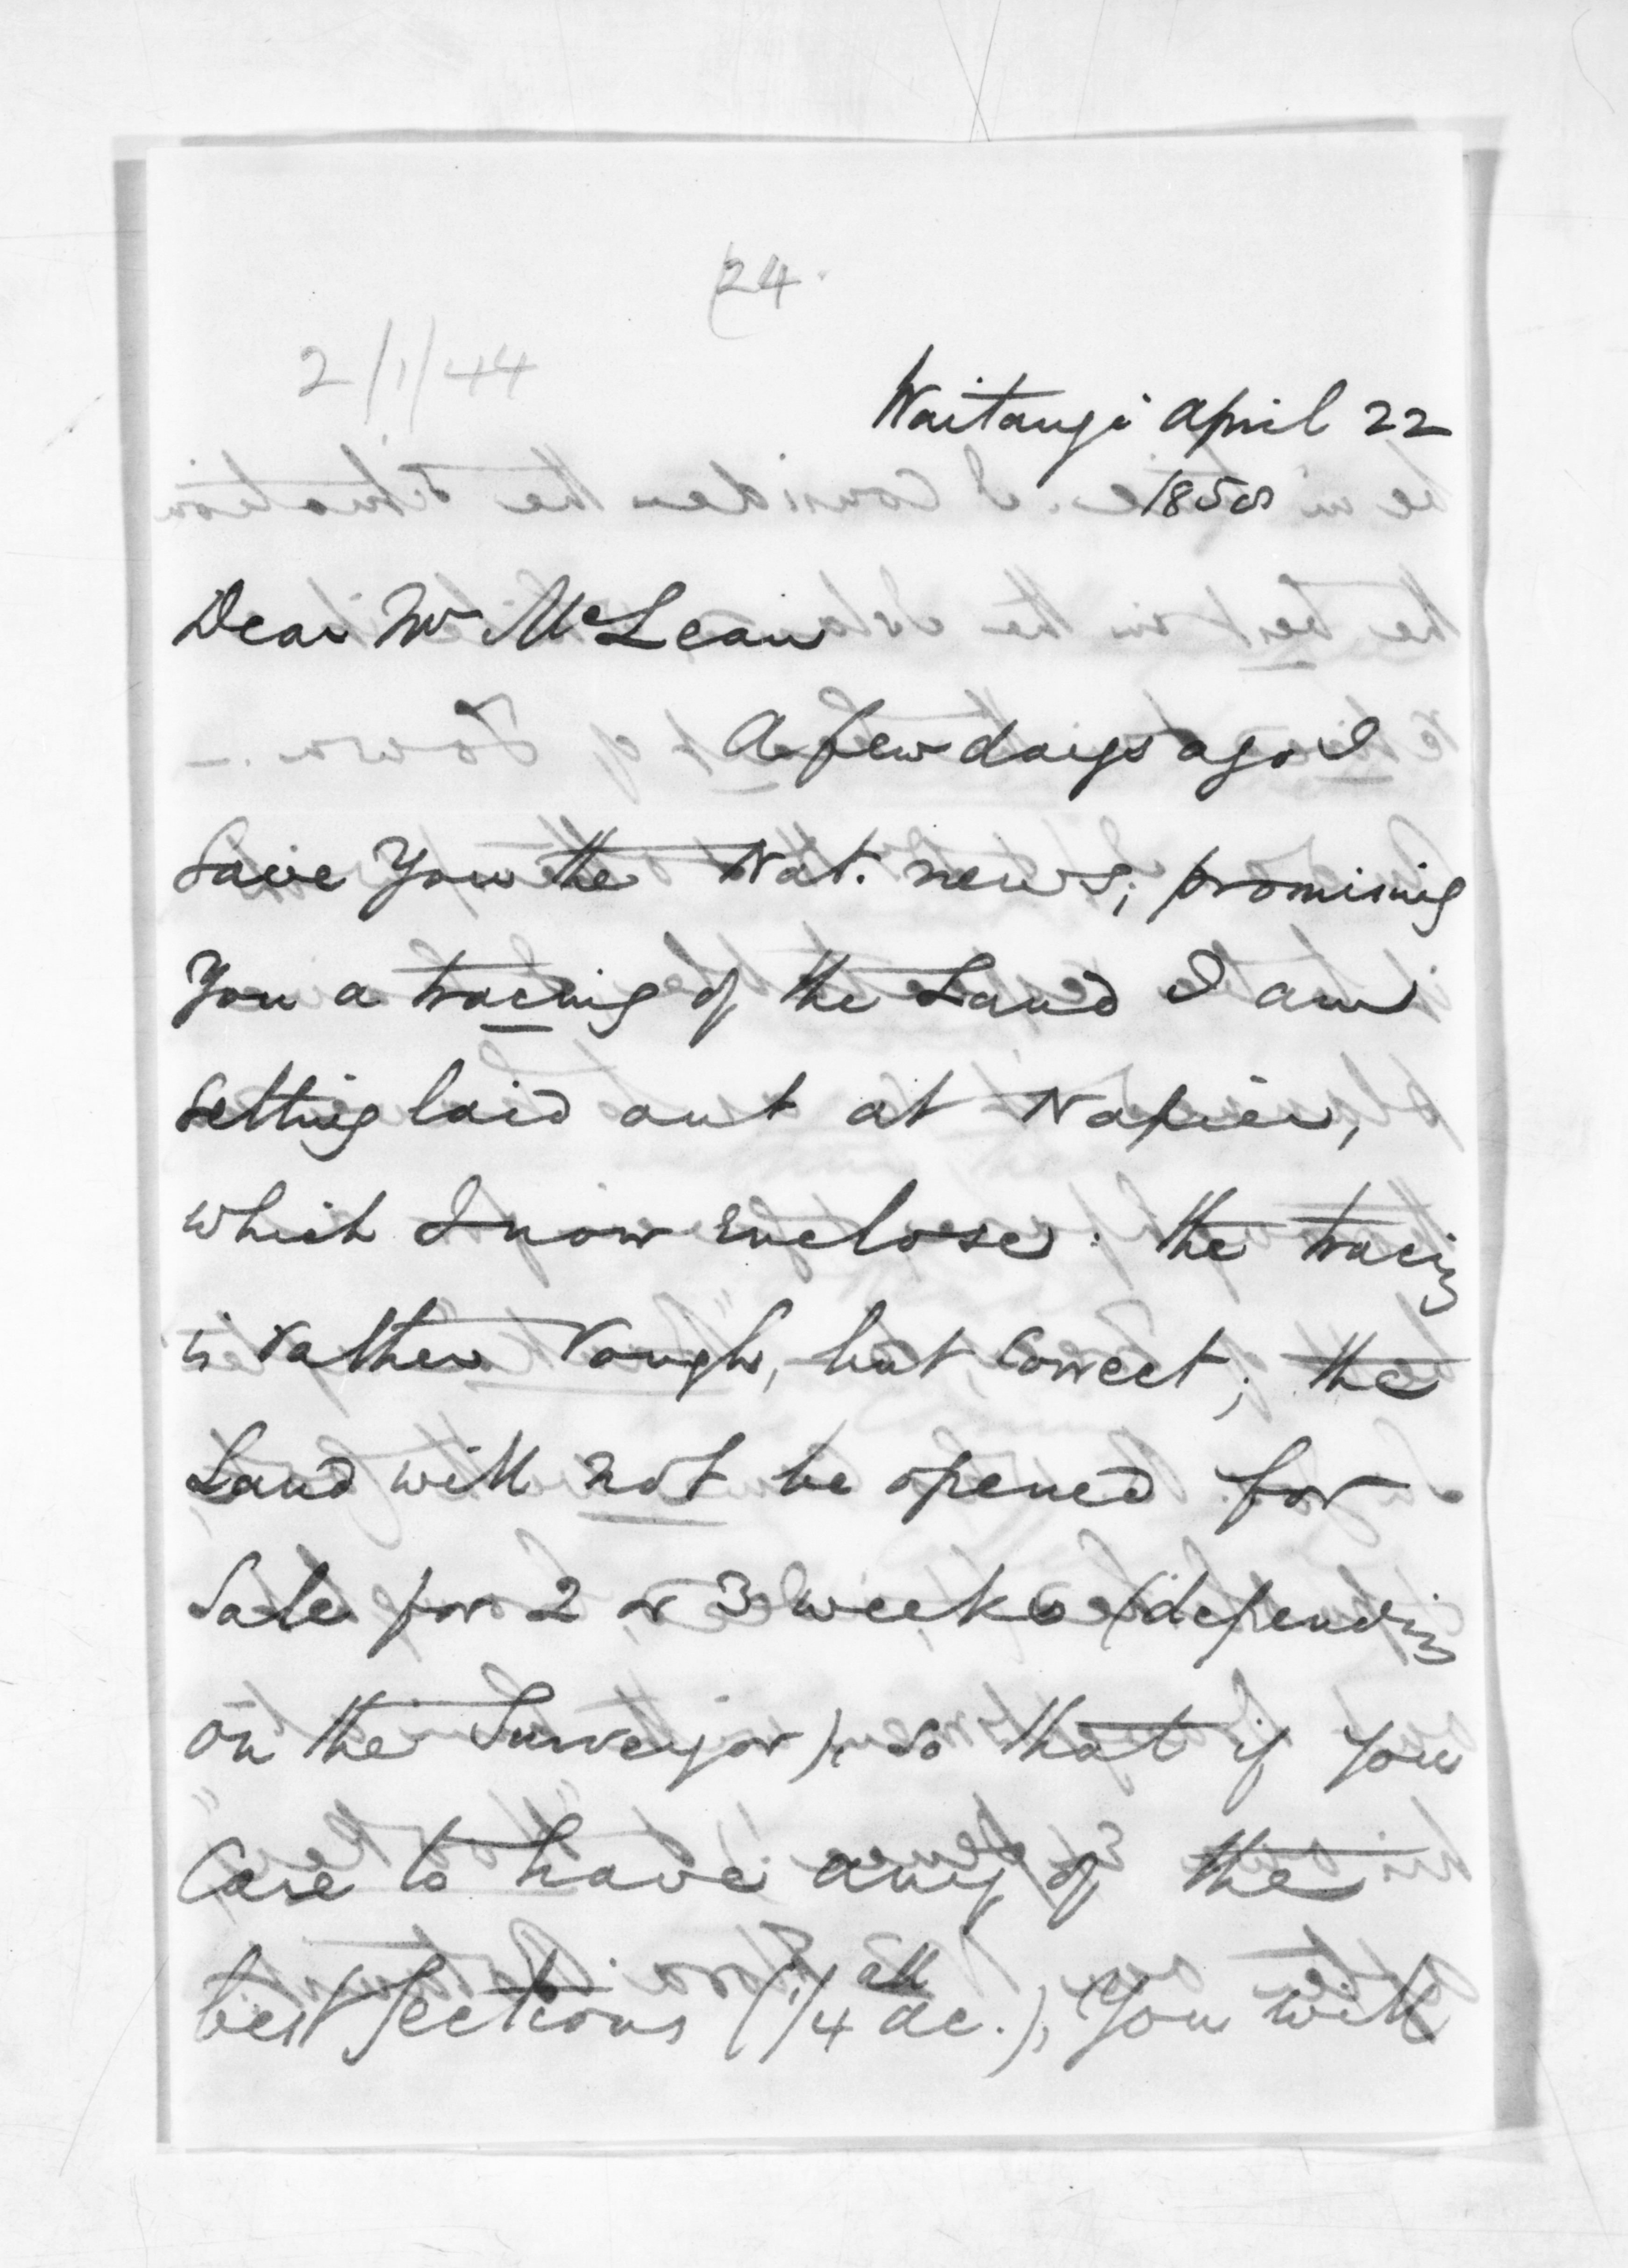 24.
2/1/44
Waitangi April 22
1858
Dear Mr McLean
A few days ago I
gave You the Nat. news; promising
You a tracing of the Land I am
getting laid out at Napier,
which I now enclose: the tracing
is rather rough, but correct; the
Land will not be opened for
Sale for 2 or 3 weeks (depending
on the Surveyor), so that if you
Care to have any of the
best Sections (all 1/4 ac.), You will